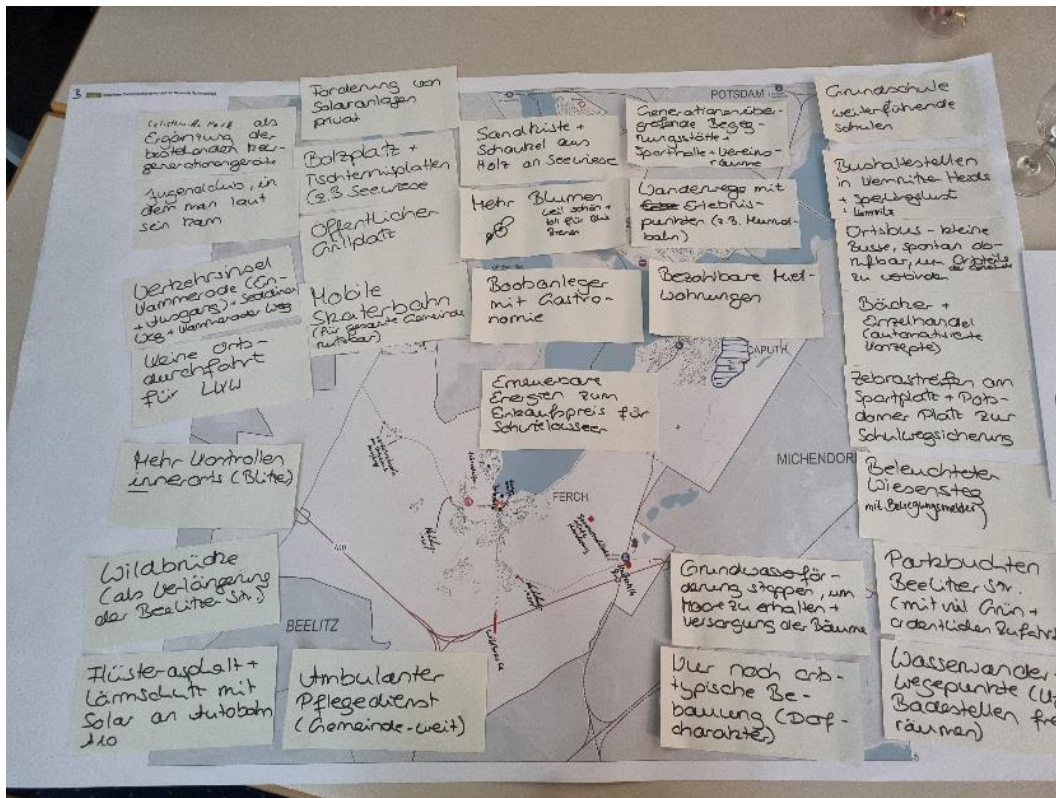 3
als
Ergänzung der
bestehenden Mehr-
generationengeräte
Jugendclub, in
dem man laut
sein kann
Verkehrsinsel
Kammerode (Ein-
+ Ausgang) + Seddiner
Weg + Kammeroder Weg
Keine Orts-
durchfahrt
für LKW
Mehr Kontrollen
innerorts (Blitzer)
Wildbrücke
(als Verlängerung
der Beelitzer Str.)
Flüsterasphalt +
Lärmschutz mit
Solar an Autobahn
A10
Förderung von
Solaranlagen
privat
Bolzplatz +
Tischtennisplatten
(z.B. Seewiese)
Öffentlicher
Grillplatz
Mobile
Skaterbahn
(für gesamte Gemeinde
nutzbar)
Ambulanter
Pflegedienst
(Gemeinde-weit)
Sandkiste +
Schaukel aus
Holz an Seewiese
Mehr Blumen
weil schön +
toll für die
Bienen
Bootsanleger
mit Gastro-
nomie
Erneuerbare
Energien zum
Einkaufspreis für
Schwielowseer
Generationenüber-
greifende Begeg-
nungsstätte +
Sporthalle + Vereins-
räume
Wanderwege mit
Erlebnis-
punkten (z.B. Murmel-
bahn)
Bezahlbare Miet-
wohnungen
Grundwasserför-
derung stoppen, um
Moore zu erhalten +
Versorgung der Bäume
Nur noch orts-
typische Be-
bauung (Dorf-
charakter)
Grundschule
weiterführende
Schulen
Bushaltestellen
in Kemnitzer Heide
+ Sperlingslust
+ Kemnitz
Ortsbus - kleine
Busse, spontan ab-
rufbar, um Ortsteile
der Gemeinde
zu verbinden
Bäcker +
Einzelhandel
(automatisierte
Konzepte)
Zebrastreifen am
Sportplatz + Pots-
damer Platz zur
Schulwegsicherung
Beleuchteter
Wiesensteg
mit Bewegungsmelder)
Parkbuchten
Beelitzer Str.
(mit viel Grün +
ordentlichen Zufahrt
Wasserwander-
wegepunkte
Badestellen
räumen)
POTSDAM
CAPUTH
MICHENDORF
FERCH
BEELITZ
A10